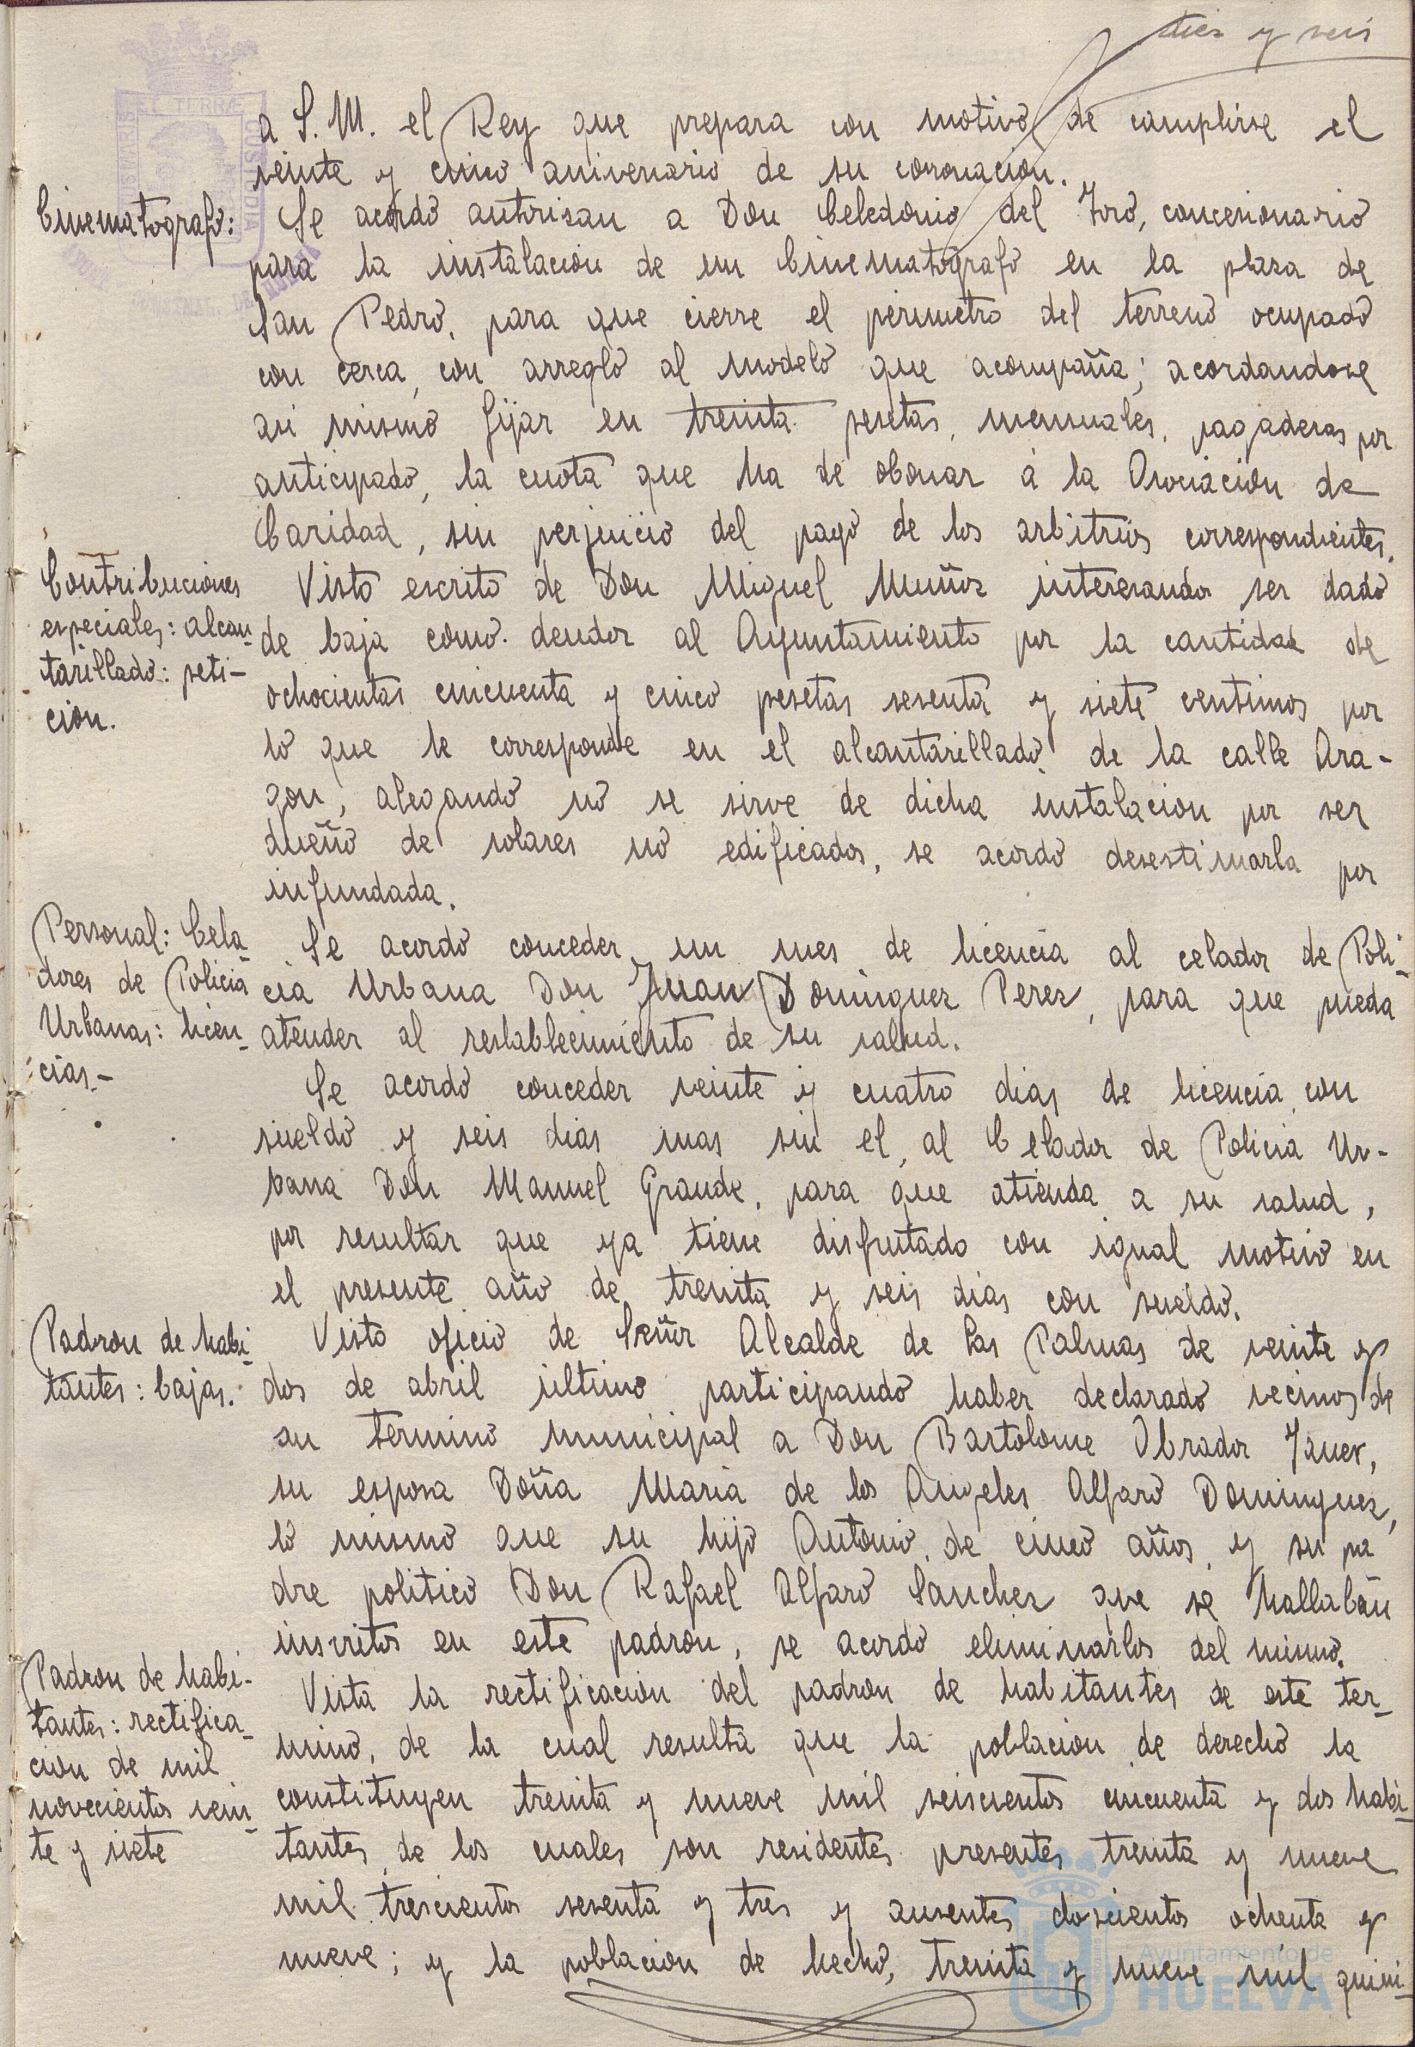 diez y seis
a S. M. el Rey que prepara con motivo de cumplirse el
veinte y cinco aniversario de su coronacion.
Cinematografo:
Se acordó autorisar a Don Celedonio del Toro, concesionario
para la instalacion de un Cinematografo en la plasa de
San Pedro, para que cierre el perimetro del terreno ocupado
con cerca, con arreglo al modelo que acompaña; acordandose
asi mismo fijar en treinta pesetas, mensuales, pagaderas por
anticipado, la cuota que ha de abonar á la Asociacion de
Caridad, sin perjuicio del pago de los arbitrios correspondientes.
Contribuciones
especiales: alcan-
tarillado: peti-
cion.
Visto escrito de Don Miguel Muñoz interesando ser dado
de baja como deudor al Ayuntamiento por la cantidad de
ochocientas cincuenta y cinco pesetas sesenta y siete centimos por
lo que le corresponde en el alcantarillado de la calle Ara-
gon, alegando no se sirve de dicha instalacion por ser
dueño de solares no edificados, se acordó desestimarla por
infundada.
Personal: Cela-
dores de Policia
Urbanas: licen-
cias.-
Se acordó conceder un mes de licencia al celador de Poli-
cia Urbana Don Juan Dominguez Perez, para que pueda
atender al restablecimiento de su salud.
Se acordó conceder veinte y cuatro dias de licencia con
sueldo y seis dias mas sin el, al Celador de Policia Ur-
bana Don Manuel Grande, para que atienda a su salud,
por resultar que ya tiene disfrutado con igual motivo en
el presente año de treinta y seis dias con sueldo.
Padron de habi-
tantes: bajas.
Visto oficio de Señor Alcalde de Las Palmas de veinte y
dos de abril último participando haber declarado vecinos de
su termino municipal a Don Bartolome Obrador Janer,
su esposa Doña Maria de los Angeles Alfaro Dominguez,
lo mismo que su hijo Antonio, de cinco años, y su pa
dre politico Don Rafael Alfaro Sanchez que se hallaban
inscritos en este padron, se acordó eliminarlos del mismo.
Padron de habi-
tantes: rectifica-
cion de mil
novecientos vein-
te y siete
Vista la rectificacion del padron de habitantes de este ter-
mino, de la cual resulta que la poblacion de derecho la
constituyen treinta y nueve mil seiscientos cincuenta y dos habi-
tantes de los cuales son residentes presentes treinta y nueve
mil trescientos sesenta y tres y ausentes doscientos ochenta y
nueve; y la poblacion de hecho, treinta y nueve mil quini-
Ayuntamiento de
HUELVA